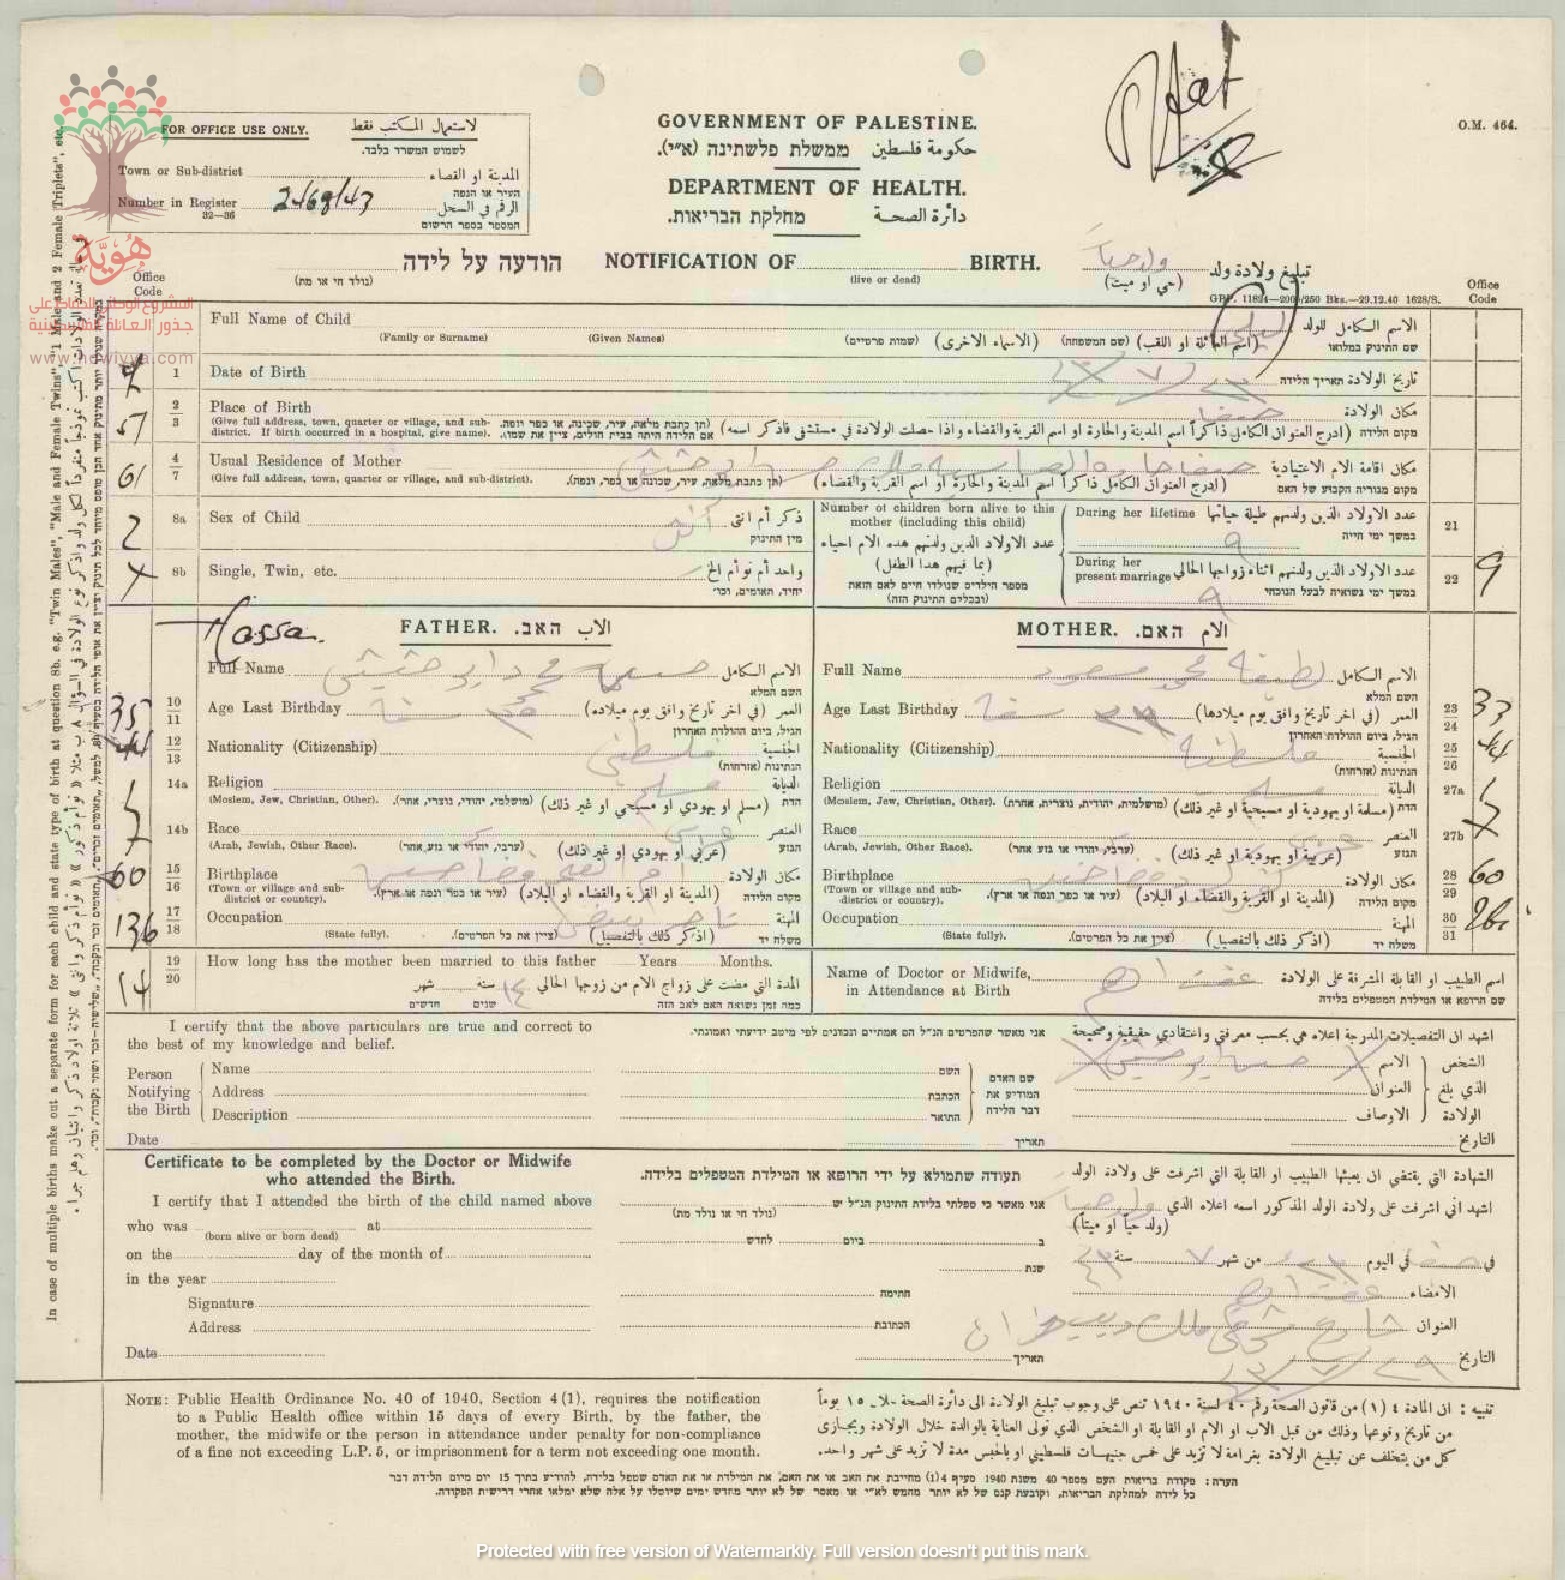 GOVERNMENT OF PALESTINE.
حكومة فلسطين ממשלת פלשתינה (א״י).
DEPARTMENT OF HEALTH.
دائرة الصحة מחלקת הבריאות.
O.M. 464.
FOR OFFICE USE ONLY. لاستعمال المكتب فقط
לשמוש המשרד בלבד.
Town or Sub-district المدينة او القضاء
העיר או הנפה
Number in Register 2468/43 الرقم في السجل
32—36 המספר בספר הרשום
هُوِيَّة
المشروع الوطني للحفاظ على
جذور العائلة الفلسطينية
www.howiyya.com
הודעה על לידה NOTIFICATION OF BIRTH. ولد حياً تبليغ ولادة ولد
(בולד חי או מת) (live or dead) (حي او ميت)
GPP. 11824—2000/250 Bks.—29.12.40 1628/S.
Office Code Office Code
Full Name of Child الاسم الكامل للولد
(Family or Surname) (Given Names) (שמות פרטיים) (الاسماء الاخرى) (שם המשפחה) (اسم العائلة او اللقب) שם התינוק במלואו
1 Date of Birth תאריך הלידה تاريخ الولادة
2/3 Place of Birth حيفا مكان الولادة
(Give full address, town, quarter or village, and sub-district. If birth occurred in a hospital, give name). (תן כתבת מלאה, עיר, שכונה, או כפר ונפה. אם הלידה היתה בבית חולים, ציין את שמו). (ادرج العنوان الكامل ذاكراً اسم المدينة والحارة او اسم القرية والقضاء واذا حصلت الولادة في مستشفى فاذكر اسمه) מקום הלידה
4/7 Usual Residence of Mother مكان اقامة الام الاعتيادية
(Give full address, town, quarter or village, and sub-district). (תן כתבת מלאה, עיר, שכונה או כפר, ונפה). (ادرج العنوان الكامل ذاكراً اسم المدينة والحارة او اسم القرية والقضاء) מקום מגוריה הקבוע של האם
61
2 8a Sex of Child أنثى ذكر أم انثى
מין התינוק
8b Single, Twin, etc. واحد أم توأم الخ
יחיד, תאומים, וכו׳
Number of children born alive to this mother (including this child)
عدد الاولاد الذين ولدتهم هذه الام احياء (بما فيهم هذا الطفل)
מספר הילדים שנולדו חיים לאם הזאת (ובכללים התינוק הזה)
During her lifetime عدد الاولاد الذين ولدتهم طيلة حياتها 21
٩ במשך ימי חייה
During her present marriage عدد الاولاد الذين ولدتهم اثناء زواجها الحالي 22 9
٩ במשך ימי נשואיה לבעל הנוכחי
FATHER. الاب האב.
Full Name الاسم الكامل
השם המלא
35 10/11 Age Last Birthday سنة العمر (في اخر تاريخ وافق يوم ميلاده)
הגיל, ביום ההולדת האחרון
44 12/13 Nationality (Citizenship) فلسطيني الجنسية
הנתינות (אזרחות)
14a Religion مسلم الديانة
(Moslem, Jew, Christian, Other). (מושלמי, יהודי, נוצרי, אחר). (مسلم او يهودي او مسيحي او غير ذلك) הדת
14b Race عربي العنصر
(Arab, Jewish, Other Race). (ערבי, יהודי או גזע אחר) (عربي او يهودي او غير ذلك) הגזע
60 15/16 Birthplace ام الفحم قضا جنين مكان الولادة
(Town or village and sub-district or country). (עיר או כפר ונפה או ארץ). (المدينة او القرية والقضاء او البلاد) מקום הלידה
136 17/18 Occupation المهنة
(State fully). (ציין את כל הפרטים). (اذكر ذلك بالتفصيل) משלח יד
14 19/20 How long has the mother been married to this father Years Months.
المدة التي مضت على زواج الام من زوجها الحالي ١٤ سنة شهر
כמה זמן נשואה האם לאב הזה שנים חדשים
MOTHER. الام האם.
Full Name لطيفه محمد مسعود الاسم الكامل
השם המלא
Age Last Birthday سنة العمر (في اخر تاريخ وافق يوم ميلادها) 23/24 33
הגיל, ביום ההולדת האחרון
Nationality (Citizenship) فلسطينيه الجنسية 25/26 44
הנתינות (אזרחות)
Religion الديانة 27a
(Moslem, Jew, Christian, Other). (מושלמית, יהודית, נוצרית, אחרת). (مسلمة او يهودية او مسيحية او غير ذلك) הדת
Race العنصر 27b
(Arab, Jewish, Other Race). (ערביה, יהודיה או גזע אחר) (عربية او يهودية او غير ذلك) הגזע
Birthplace مكان الولادة 28/29 60
(Town or village and sub-district or country). (עיר או כפר ונפה או ארץ). (المدينة او القرية والقضاء او البلاد) מקום הלידה
Occupation المهنة 30/31
(State fully). (ציין את כל הפרטים). (اذكر ذلك بالتفصيل) משלח יד
Name of Doctor or Midwife, in Attendance at Birth اسم الطبيب او القابلة المشرفة على الولادة
שם הרופא או המילדת המטפלים בלידה
I certify that the above particulars are true and correct to the best of my knowledge and belief.
אני מאשר שהפרטים הנ״ל הם אמתיים ונכונים לפי מיטב ידיעתי ואמונתי.
اشهد ان التفصيلات المدرجة اعلاه هي بحسب معرفتي واعتقادي حقيقية وصحيحة
Person Notifying the Birth
Name השם الاسم الشخص
Address הכתבת العنوان الذي بلغ
Description התואר الاوصاف الولادة
שם האדם המודיע את דבר הלידה
Date תאריך التاريخ
Certificate to be completed by the Doctor or Midwife who attended the Birth.
תעודה שתמולא על ידי הרופא או המילדת המטפלים בלידה.
الشهادة التي يقتضي ان يعبئها الطبيب او القابلة التي اشرفت على ولادة الولد
I certify that I attended the birth of the child named above
who was at
(born alive or born dead)
on the day of the month of
in the year
Signature
Address
Date
אני מאשר כי טפלתי בלידת התינוק הנ״ל יש
(נולד חי או נולד מת)
ב ביום לחדש
שנת
חתימה
הכתובת
תאריך
اشهد اني اشرفت على ولادة الولد المذكور اسمه اعلاه الذي ولد حياً
(ولد حياً او ميتاً)
في حيفا في اليوم من شهر ٧ سنة ٤٣
الامضاء
العنوان
التاريخ
NOTE: Public Health Ordinance No. 40 of 1940, Section 4(1), requires the notification
to a Public Health office within 15 days of every Birth, by the father, the
mother, the midwife or the person in attendance under penalty for non-compliance
of a fine not exceeding L.P. 5, or imprisonment for a term not exceeding one month.
تنبيه : ان المادة ٤ (١) من قانون الصحة رقم ٤٠ لسنة ١٩٤٠ تنص على وجوب تبليغ الولادة الى دائرة الصحة خلال ١٥ يوماً
من تاريخ وقوعها وذلك من قبل الاب او الام او القابلة او الشخص الذي تولى العناية بالوالدة خلال الولادة ويجازى
كل من يتخلف عن تبليغ الولادة بغرامة لا تزيد على خمس جنيهات فلسطيني او بالحبس مدة لا تزيد على شهر واحد.
הערה: פקודת בריאות העם מספר 40 משנת 1940 סעיף 4(1) מחייבת את האב או את האם, את המילדת או את האדם שטפל בלידה, להודיע בתוך 15 יום מיום הלידה דבר
כל לידה למחלקת הבריאות, וקובעת קנס של לא יותר מחמש לא״י או מאסר של לא יותר מחדש ימים שיוטלו על אלה שלא ימלאו אחרי דרישות הפקודה.
In case of multiple births make out a separate form for each child and state type of birth at question 8b. e.g. "Twin Males", "Male and Female Twins", "1 Male and 2 Female Triplets", etc.
Protected with free version of Watermarkly. Full version doesn't put this mark.